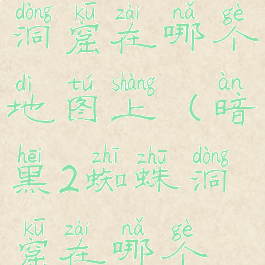 dòng kū zài nǎ gè
洞窟在哪个
dì tú shàng àn
地图上（暗
hēi zhī zhū dòng
黑2蜘蛛洞
kū zài nǎ gè
窟在哪个